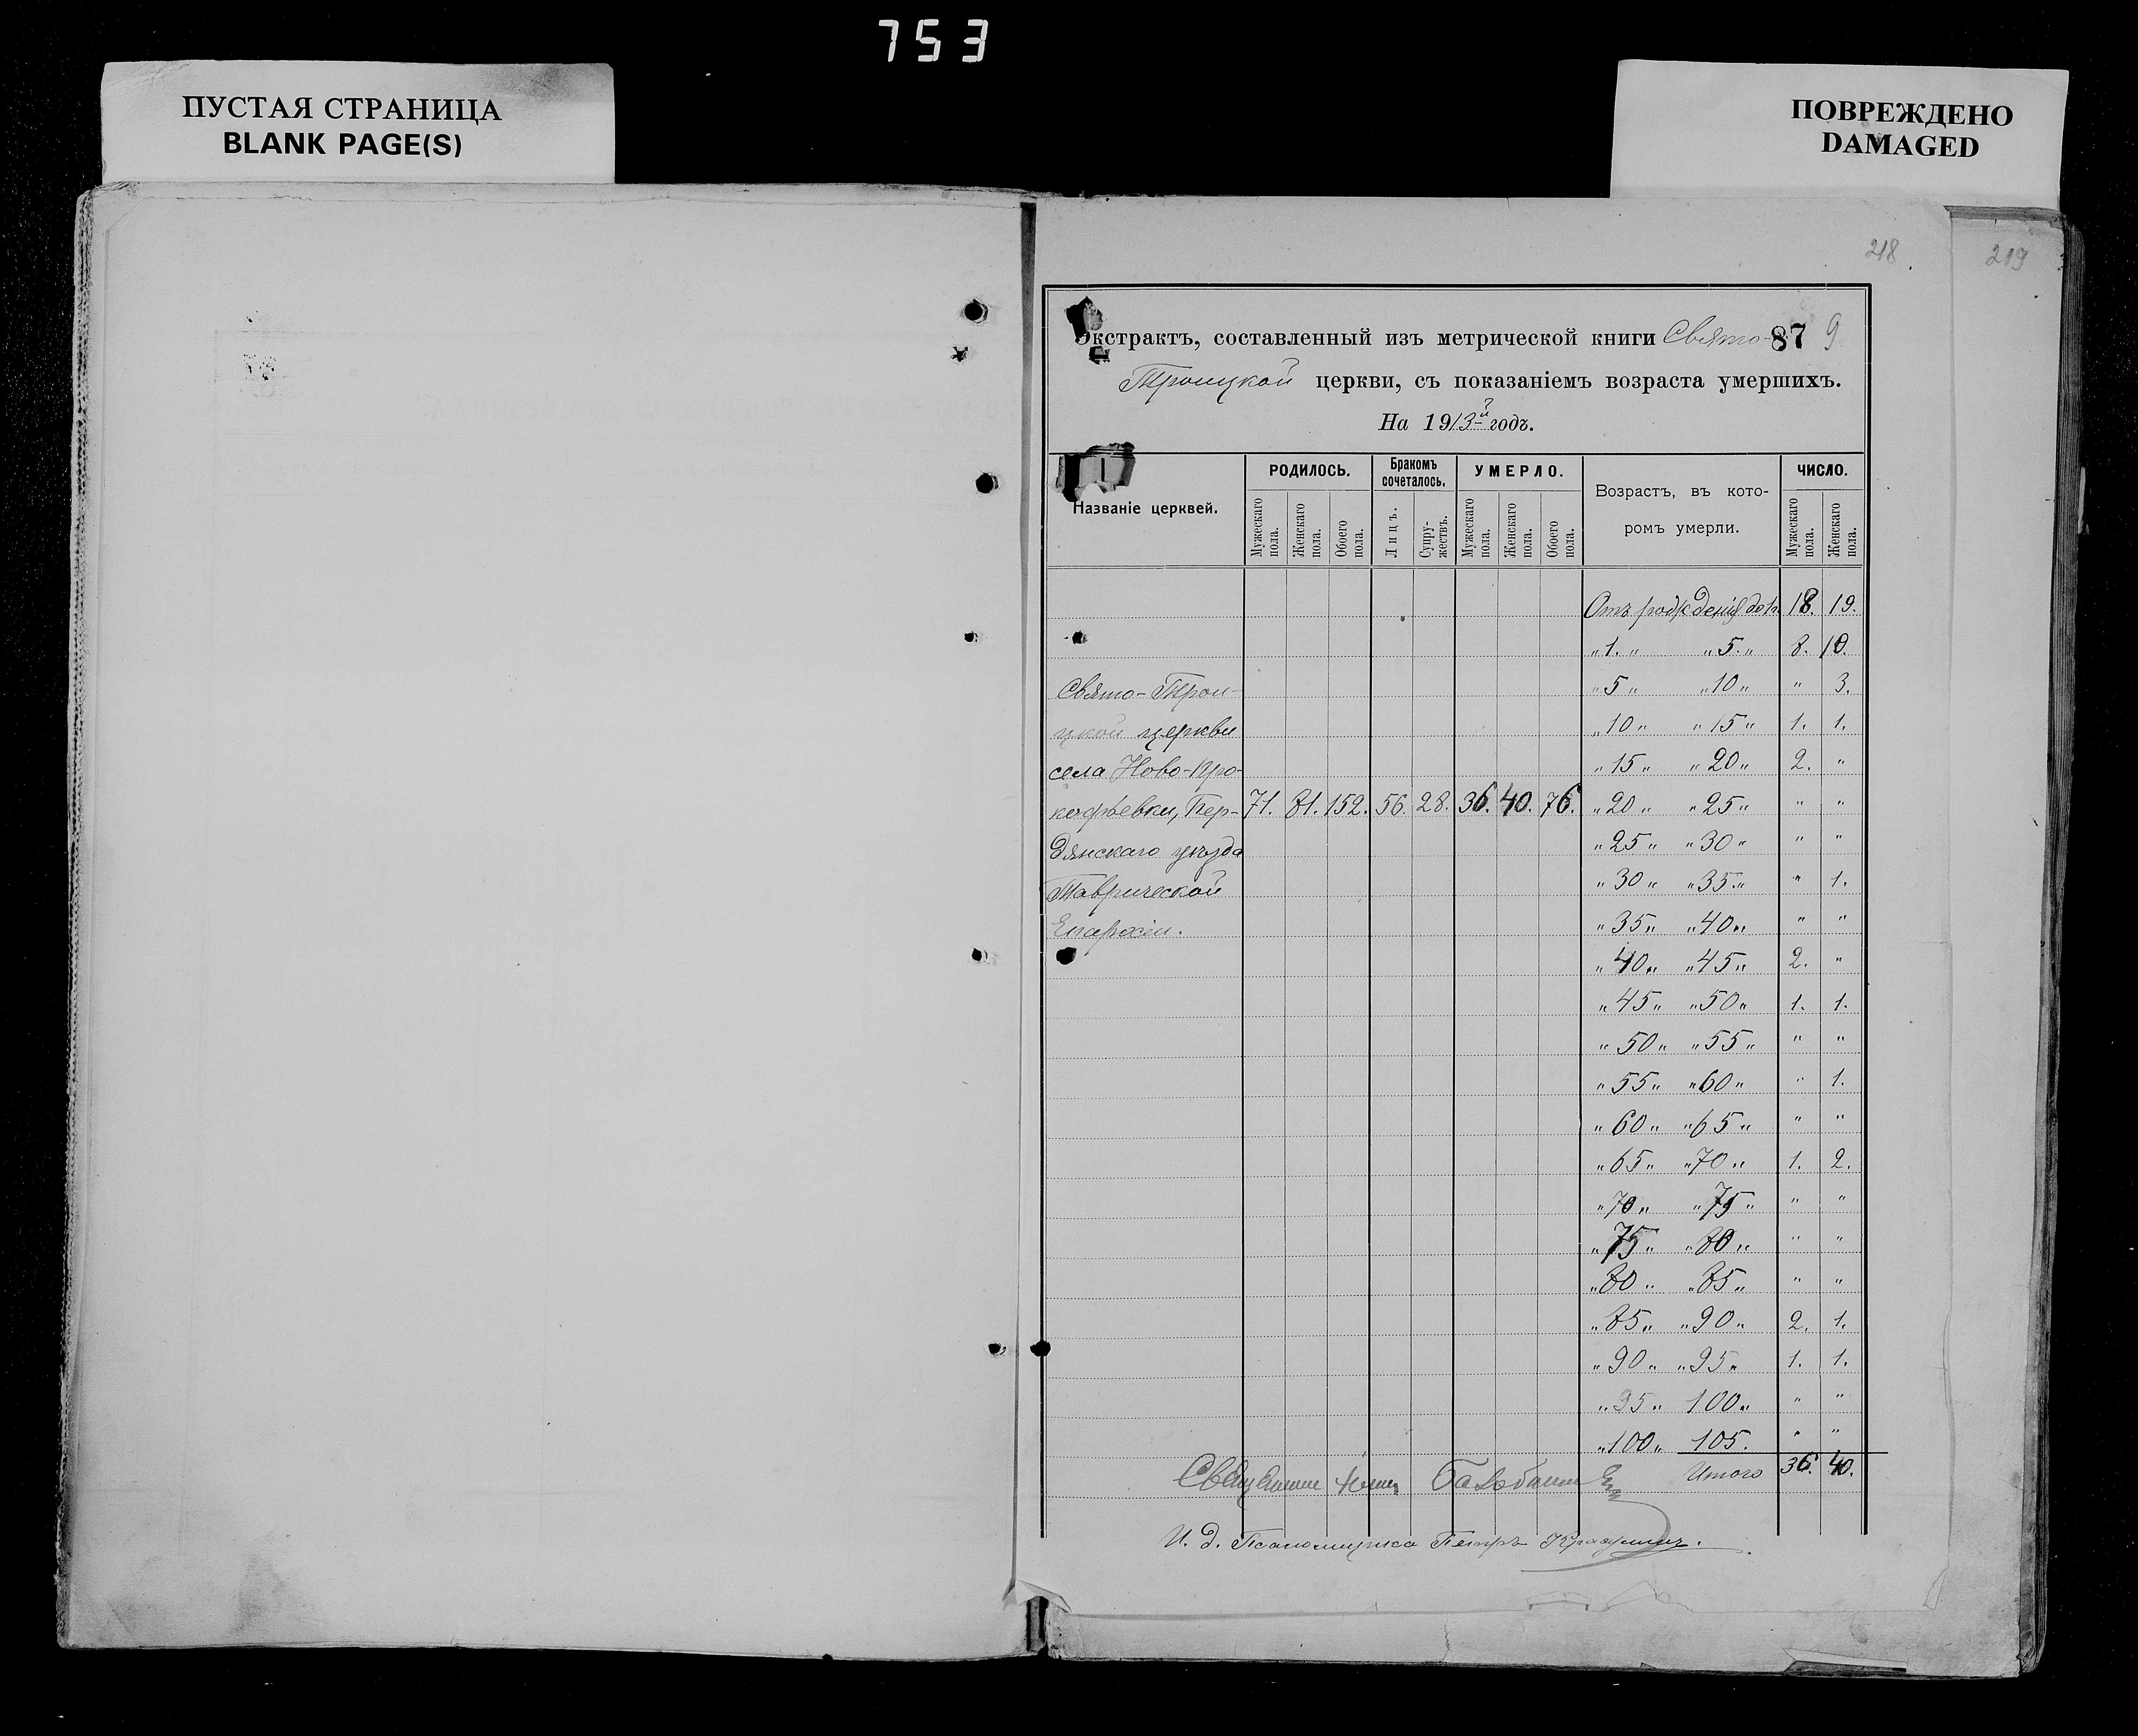 753
ПУСТАЯ СТРАНИЦА
BLANK PAGE(S)
ПОВРЕЖДЕНО
DAMAGED
218
219
Экстрактъ, составленный изъ метрической книги Свято-
879
Троицкой церкви, съ показаніемъ возраста умершихъ.
На 1913й годъ.
Названіе церквей.
РОДИЛОСЬ.
Бракомъ сочеталось.
УМЕРЛО.
Возрастъ, въ кото-
ромъ умерли.
ЧИСЛО.
Мужескаго пола. Женскаго пола. Обоего пола. Лицъ. Супру-жествъ. Мужескаго пола. Женскаго пола. Обоего пола. Мужескаго пола. Женскаго пола.
Отъ рожденія до 1. 18. 19.
"1." "5." 8. 10.
Свято-Трои- "5" "10" " 3.
цкой церкви "10" "15" 1. 1.
села Ново-Про- "15" "20" 2. "
кофьевки, Бер- 71. 81. 152. 56. 28. 36. 40. 76. "20" "25" " "
дянскаго уѣзда "25" "30" " "
Таврической "30" "35" " 1.
Епархіи. "35" "40" " "
"40" "45" 2. "
"45" "50" 1. 1.
"50" "55" " "
"55" "60" " 1.
"60" "65" " "
"65" "70" 1. 2.
"70" "75" " "
"75" "80" " "
"80" "85" " "
"85" "90" 2. 1.
"90" "95" 1. 1.
"95" 100" " "
"100" 105. " "
Итого 36. 40.
Священник
И. д. Псаломщика Петръ